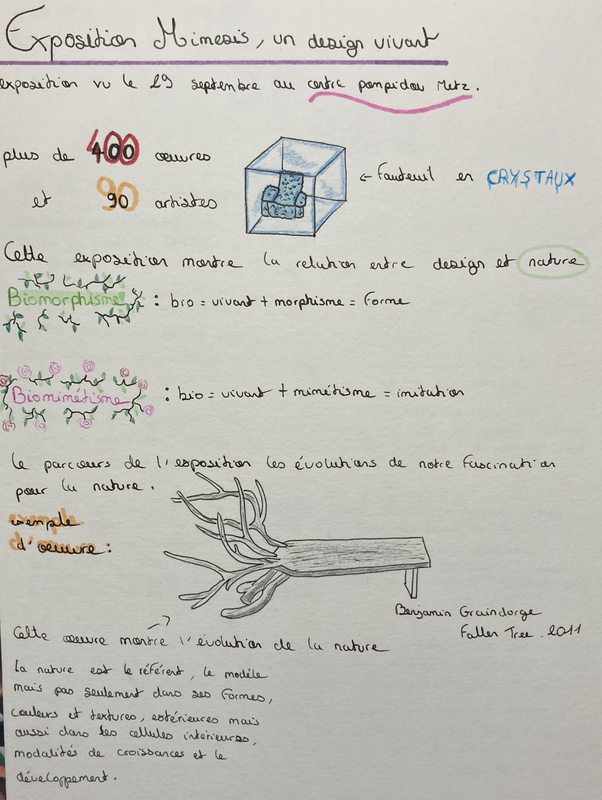 Exposition Mimesis, un design vivant
exposition vu le 29 septembre au centre pompidou Metz.
plus de 400 œuvres
et 90 artistes
← Fauteuil en CRYSTAUX
Cette exposition montre la relation entre design et nature
Biomorphisme : bio = vivant + morphisme = Forme
Biomimétisme : bio = vivant + mimétisme = imitation
Le parcours de l'exposition les évolutions de notre Fascination
pour la nature.
exemple
d'œuvre :
Benjamin Graindorge
Fallen Tree. 2011
Cette œuvre montre l'évolution de la nature
La nature est le référent, le modèle
mais pas seulement dans ses Formes,
couleurs et textures, extérieures mais
aussi dans les cellules intérieures,
modalités de croissances et le
développement.